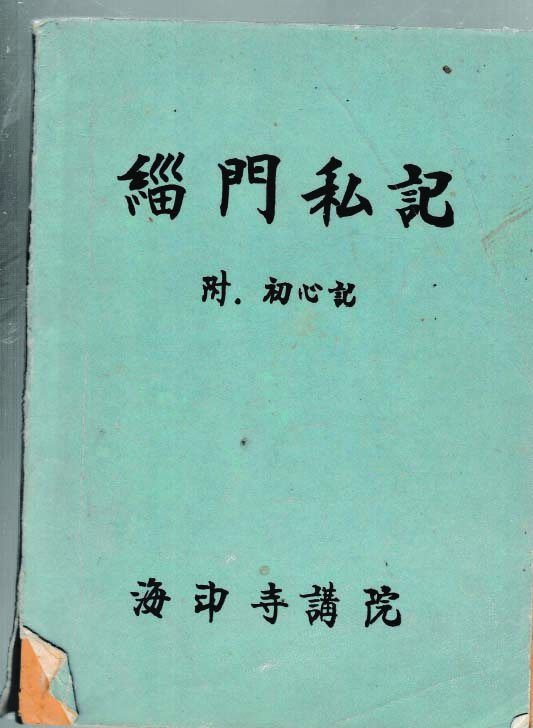 緇門私記
附. 初心記
海印寺講院